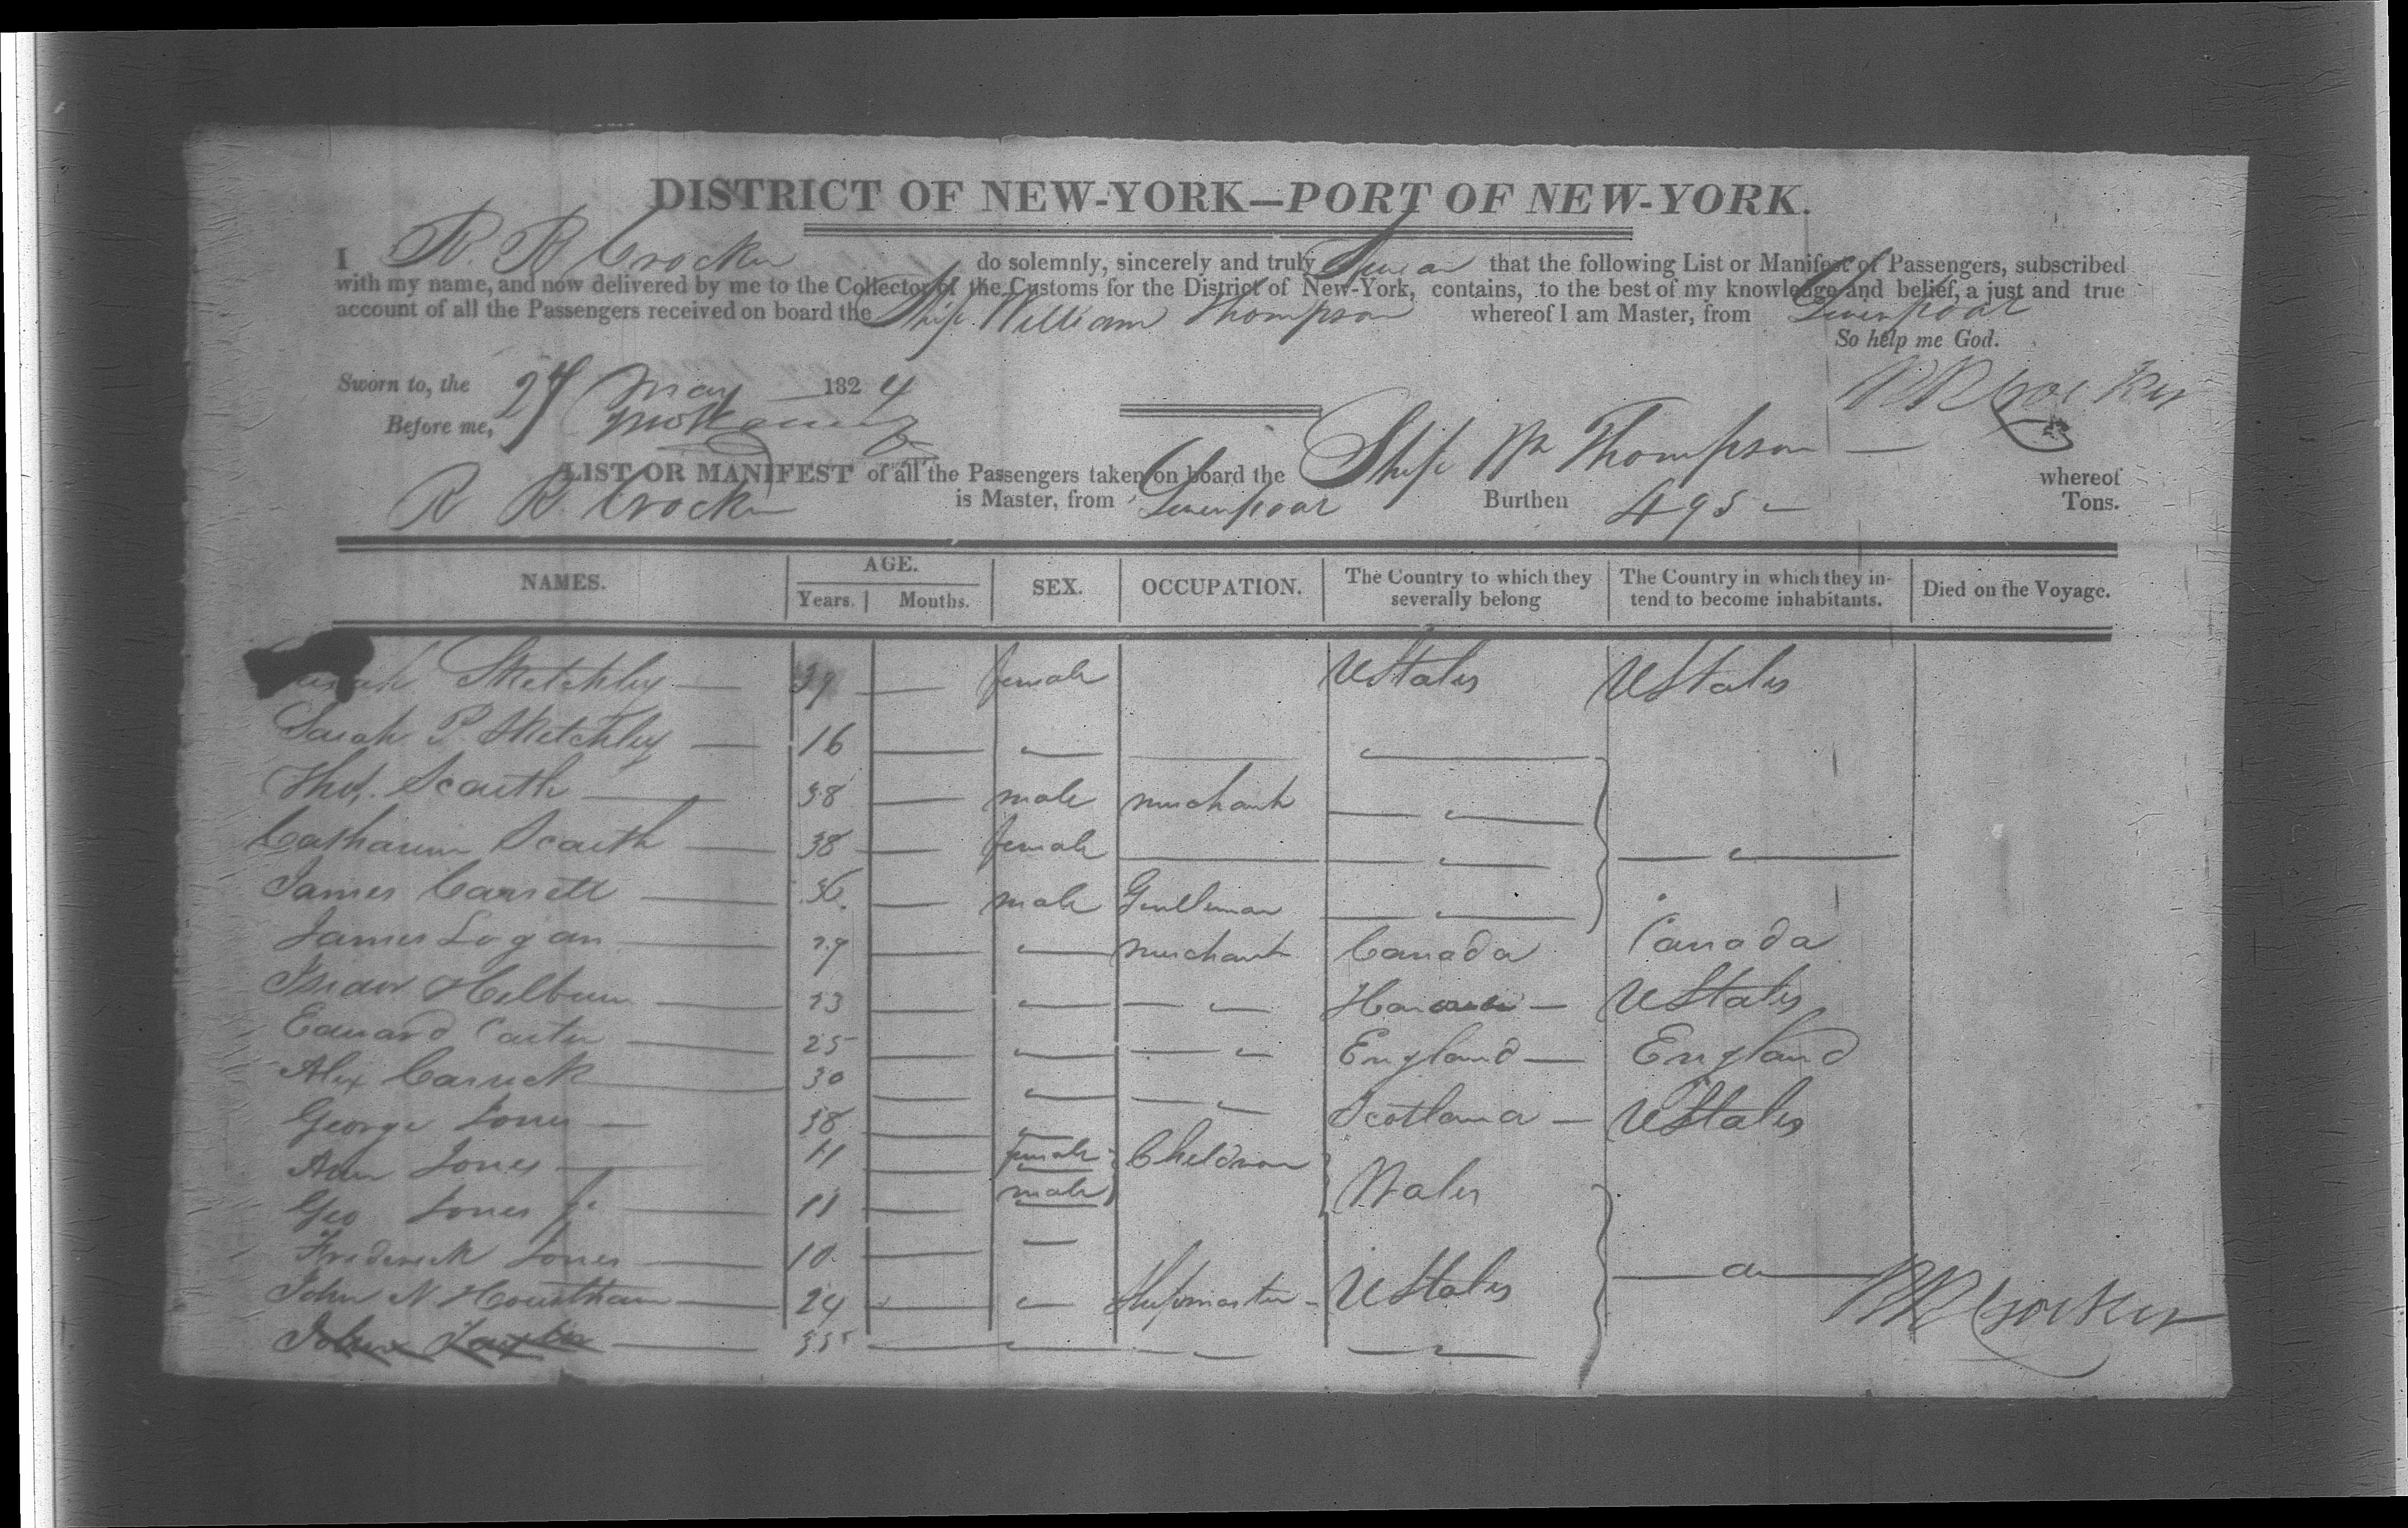 DISTRICT OF NEW-YORK—PORT OF NEW-YORK.
I R. B Crocker do solemnly, sincerely and truly Swear that the following List or Manifest of Passengers, subscribed
with my name, and now delivered by me to the Collector of the Customs for the District of New-York, contains, to the best of my knowledge and belief, a just and true
account of all the Passengers received on board the Ship William Thompson whereof I am Master, from Liverpool
So help me God.
Sworn to, the 24 May 1824
R B Crocker
Before me,
LIST OR MANIFEST of all the Passengers taken on board the Ship Wm Thompson — whereof
R B. Crocker is Master, from Liverpool Burthen 495 Tons.
NAMES. AGE. Years. Months. SEX. OCCUPATION. The Country to which they severally belong The Country in which they intend to become inhabitants. Died on the Voyage.
Sketchley — 39 — female UStates UStates
Sarah P. Sketchley — 16 — " — "
Thos. Scaith — 38 — male merchant — "
Catharine Scaith — 38 — female — " — " —
James Carrett — 36 — male Gentleman — "
James Logan — 29 — " merchant Canada Canada
Hilburn — 23 — " — " — UStates
Edward Carter — 25 — " — " England — England
Alex Carrick — 30 — " — " Scotland — UStates
George Jones — 38 — "
Ann Jones — 11 — female Children
Geo Jones Jr — 11 — male Wales
Frederick Jones — 10 — —
John N. — 24 — " Shipmaster — UStates — do —
John Taylor — 35 — — " — "
R B Crocker